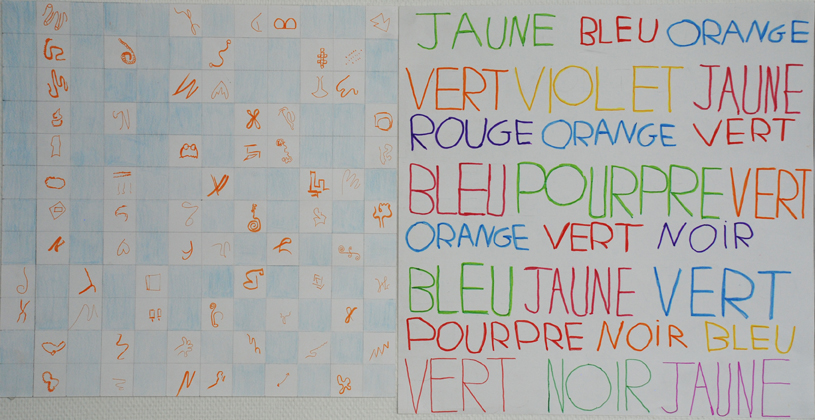 JAUNE BLEU ORANGE
VERT VIOLET JAUNE
ROUGE ORANGE VERT
BLEU POURPRE VERT
ORANGE VERT NOIR
BLEU JAUNE VERT
POURPRE NOIR BLEU
VERT NOIR JAUNE